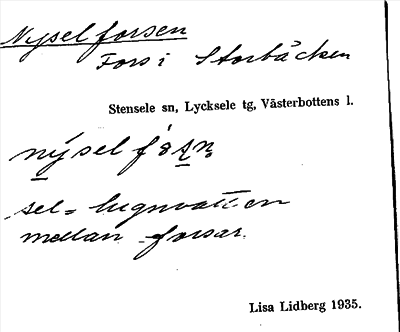 Nyselforsen
Fors i Storbäcken
Stensele sn, Lycksele tg, Västerbottens l.
nýsel
sel = lugnvatten
mellan forsar.
Lisa Lidberg 1935.